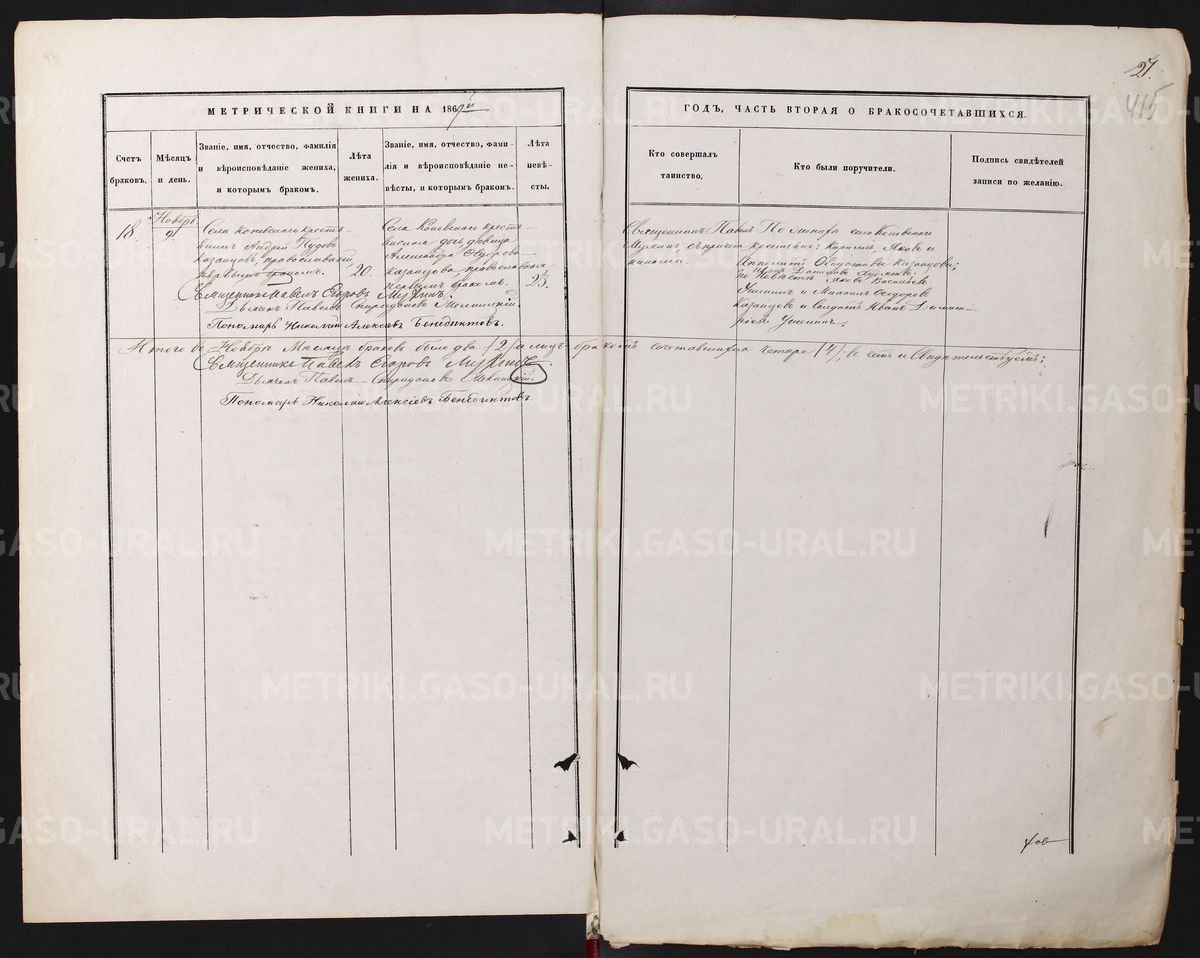 27.
415
МЕТРИЧЕСКОЙ КНИГИ НА 186
ГОДЪ, ЧАСТЬ ВТОРАЯ О БРАКОСОЧЕТАВШИХСЯ.
Счетъ браковъ.
Мѣсяцъ и день.
Званіе, имя, отчество, фамилія
и вѣроисповѣданіе жениха,
и которымъ бракомъ.
Лѣта жениха.
Званіе, имя, отчество, фами-
лія и вѣроисповѣданіе не-
вѣсты, и которымъ бракомъ.
Лѣта невѣ-
сты.
Кто совершалъ
таинство.
Кто были поручители.
Подпись свидѣтелей
записи по желанію.
18.
Ноябрь
9.
Села Коневскаго кресть-
янинъ Андрей
Казанцовъ, православный,
первымъ бракомъ.
20.
Села Коневскаго кресть-
янская дочь дѣвица
Александра Ѳедорова
Казанцова православная
первымъ бракомъ.
23.
Священникъ Павелъ
Мухинъ съ причет-
никами.
По женихѣ села Коневскаго
крестьяне: Кириллъ, Яковъ и
Ипполитъ Казанцовы;
по невѣстѣ Яковъ Васильевъ
и Михаилъ Ѳеодоровъ
Казанцовъ и Солдатъ Иванъ Димит-
ріевъ
Священникъ Павелъ Егоровъ Мухинъ.
Дьячекъ Павелъ Спиридоновъ
Пономарь Николай Алексѣевъ Бенедиктовъ.
Итого въ Ноябрѣ Мѣсяцѣ браковъ было два (2) а лицъ бракомъ сочетавшихся четыре (4); въ чемъ и свидѣтельствуемъ;
Священникъ Павелъ Егоровъ Мухинъ
Дьячекъ Павелъ Спиридоновъ
Пономарь Николай Алексѣевъ Бенедиктовъ.
METRIKI.GASO-URAL.RU